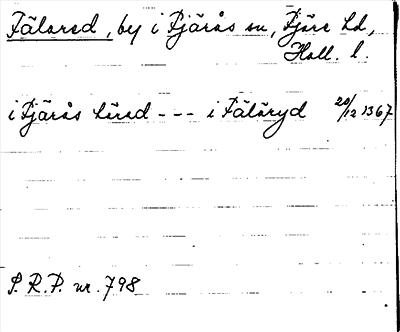 Fälared, by i Fjärås sn, Fjäre hd,
Hall. l.
i Fjärås härad - - - i Fäläryd 20/12 1367
S. R. P. nr. 798